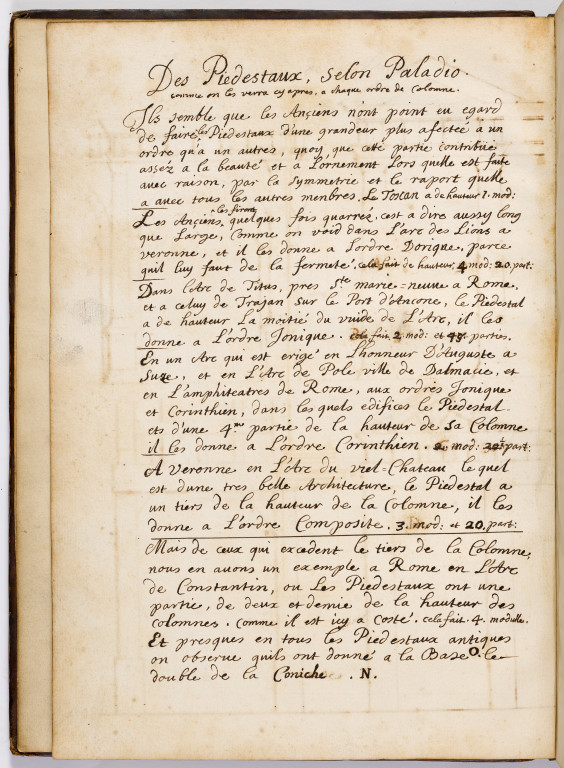 Des Piedestaux, selon Paladio.
comme on les verra cy apres, a chaque ordre de Colomne.
Ils semble que les Anciens n'ont point eu egard
de faire les Piedestaux d'une grandeur plus afectée a un
ordre qu'a un autres, quoy que cette partie contribüe
asséz a la beauté et a L'ornement Lors quelle est faite
avec raison, par la Symmetrie et le raport quelle
a avec tous les autres menbres. Le Toscan a de hauteur 1. mod:
Les Anciens les firent quelques fois quarréz, cest a dire aussy long
que Large, Comme on void dans L'arc des Lions a
veronne, et il les donne a Lordre Dorique, parce
quil luy faut de la fermeté. cela fait de hauteur. 4. mod: 20. part:
Dans L'Arc de Titus, pres Ste marie=neuve a Rome,
et a celuy de Trajan sur le Port d'Ancone, le Piedestal
a de hauteur La moitié du vuide de L'Arc, il les
donne a L'ordre Jonique. cela fait. 2. mod: et 45. parties.
En un Arc qui est erigé en L'honneur D'Auguste a
Suze, et en L'Arc de Pole ville de Dalmacie, et
en L'amphiteatres de Rome, aux ordrés Jonique
et Corinthien, dans les quels edifices le Piedestal
ets d'une 4me partie de la hauteur de sa Colomne
il les donne a L'ordre Corinthien. mod: part:
A Veronne en L'Arc du viel=Chateau le quel
est dune tres belle Architecture, le Piedestal a
un tiers de la hauteur de la Colomne, il les
donne a L'ordre Composite. 3. mod: et 20. part:
Mais de ceux qui excedent le tiers de la Colomne,
nous en auons un exemple a Rome en L'Arc
de Constantin, ou Les Piedestaux ont une
partie, de deux et demie de la hauteur des
colomnes. comme il est icy a costé. cela fait. 4. modulle.
Et presques en tous les Piedestaux antiques
on observe quils ont donné a la Base O. le
double de la Coniche . N.